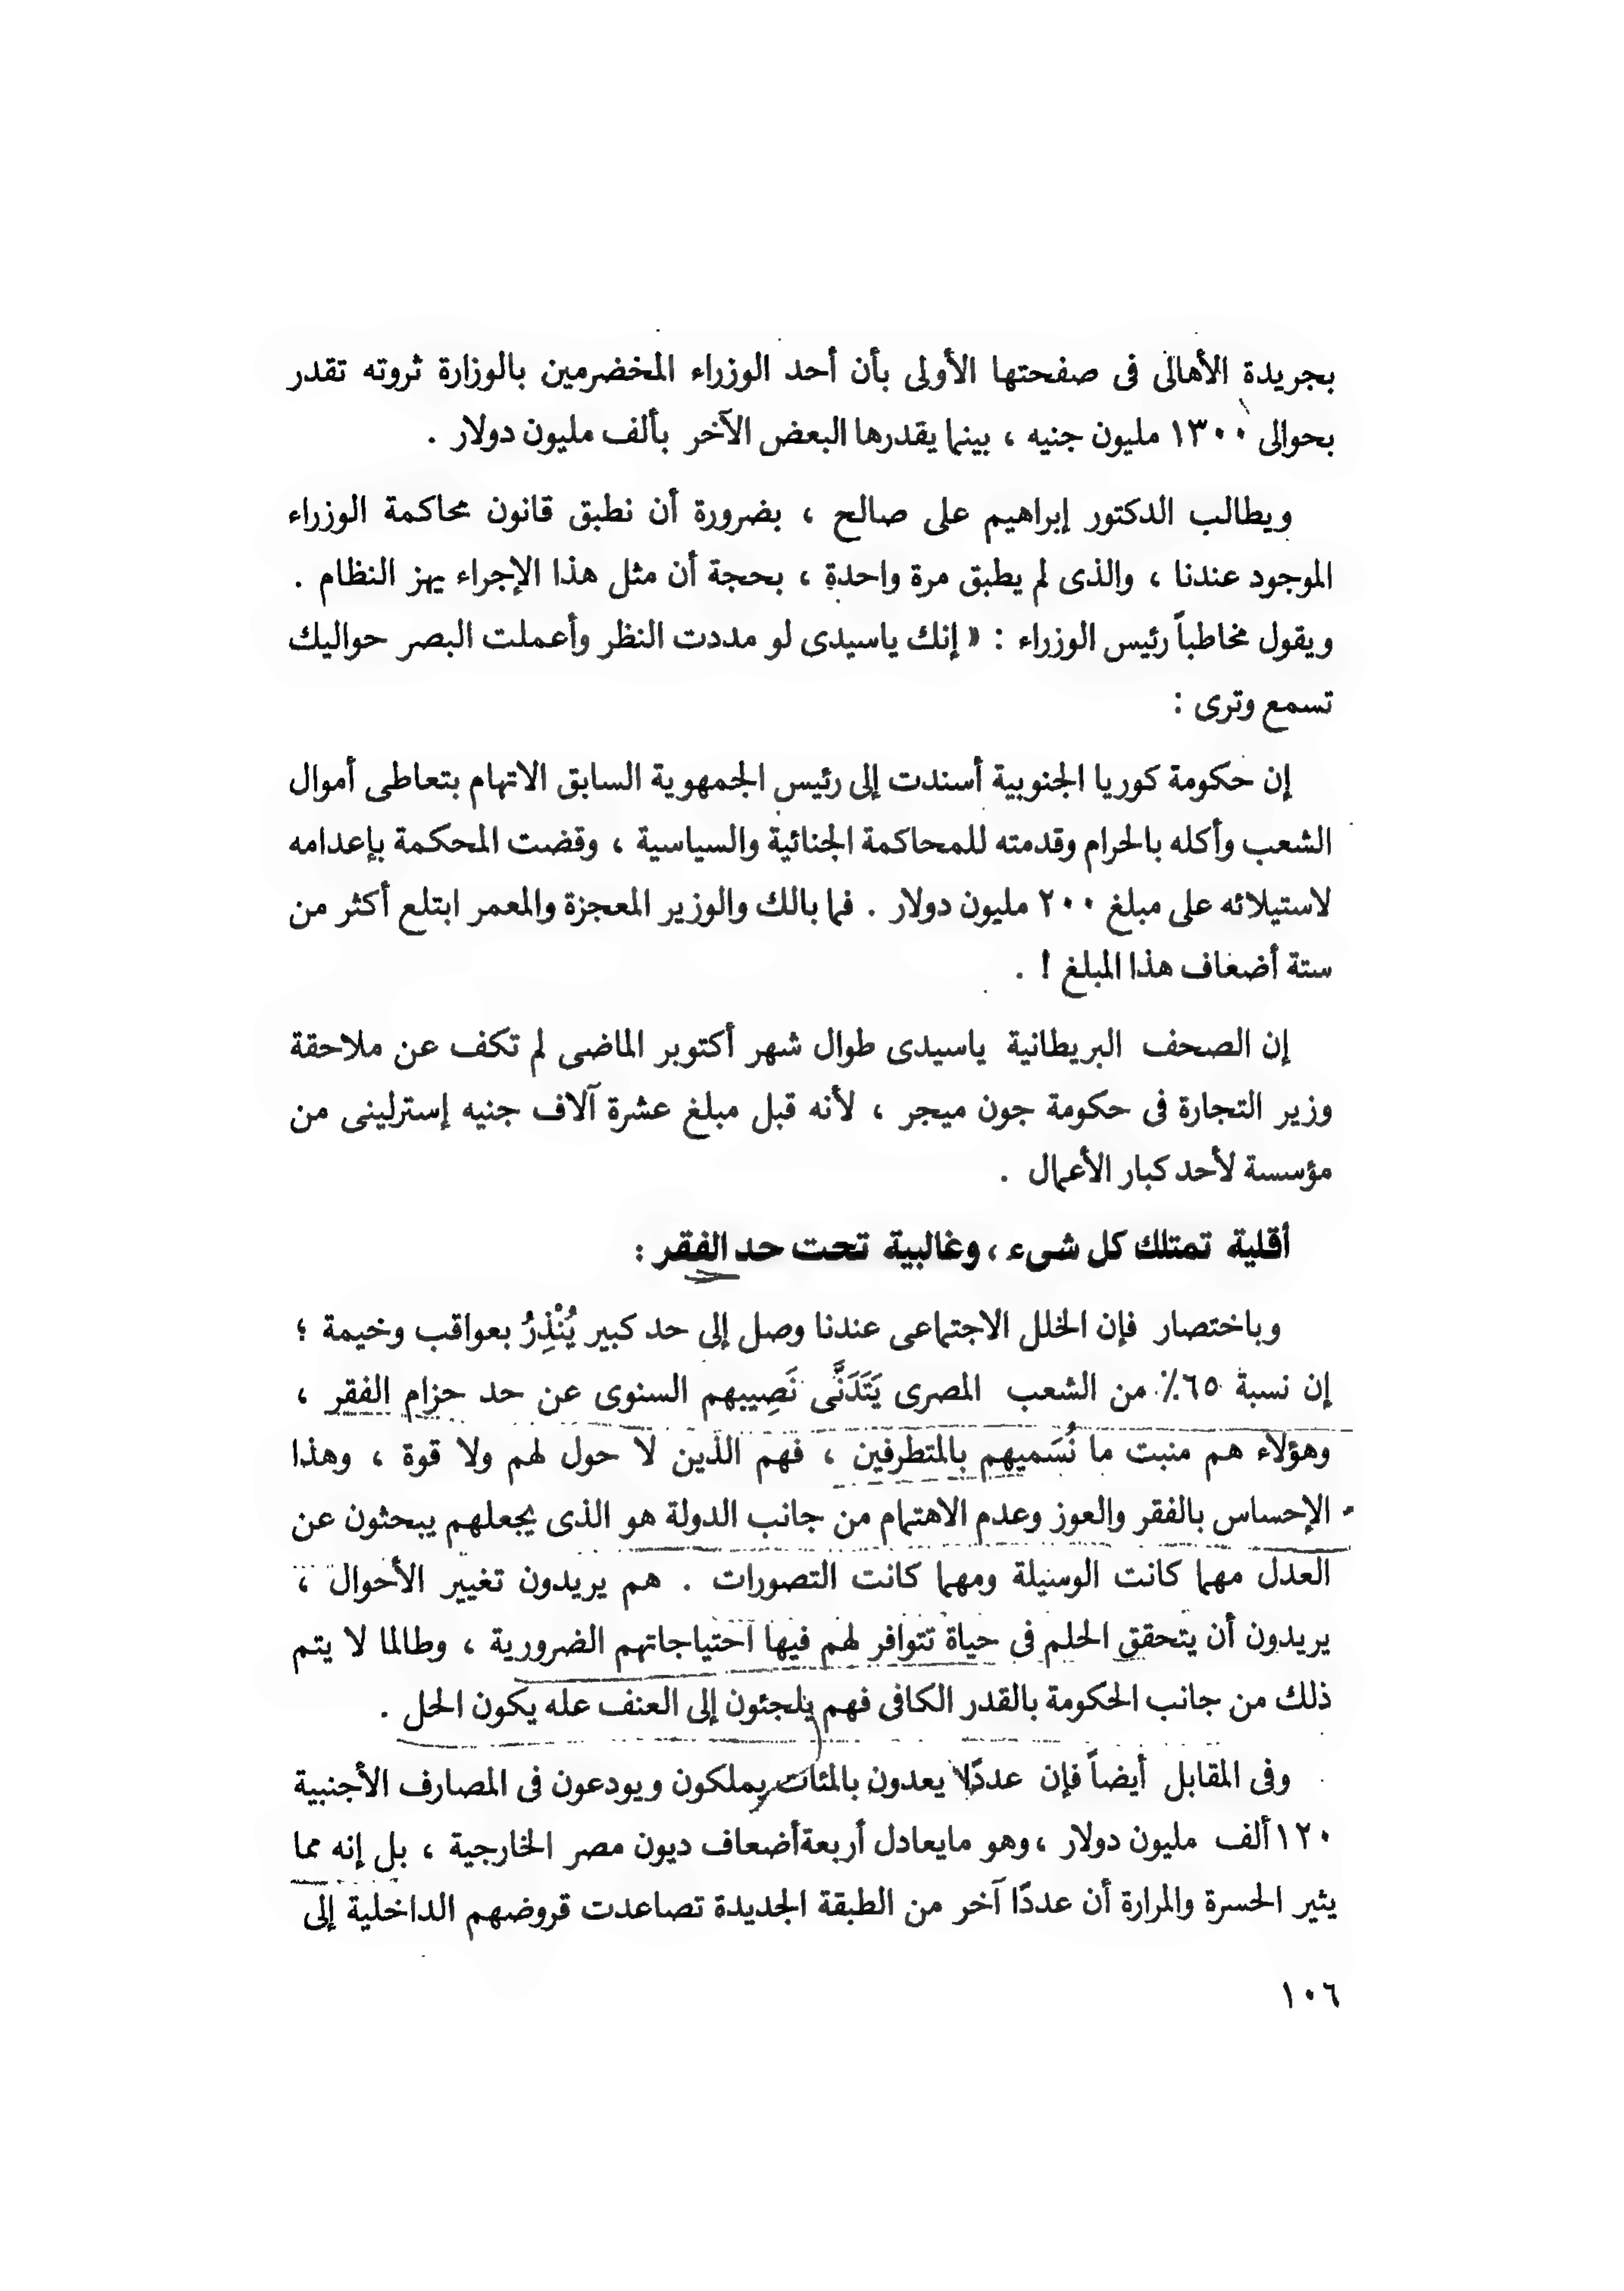 بجريدة الأهالى فى صفحتها الأولى بأن أحد الوزراء المخضرمين بالوزارة ثروته تقدر
بحوالى ١٣٠٠ مليون جنيه ، بينما يقدرها البعض الآخر بألف مليون دولار .
ويطالب الدكتور إبراهيم على صالح ، بضرورة أن نطبق قانون محاكمة الوزراء
الموجود عندنا ، والذى لم يطبق مرة واحدة ، بحجة أن مثل هذا الإجراء يهز النظام .
ويقول مخاطباً رئيس الوزراء : « إنك ياسيدى لو مددت النظر وأعملت البصر حواليك
تسمع وترى :
إن حكومة كوريا الجنوبية أسندت إلى رئيس الجمهورية السابق الاتهام بتعاطى أموال
الشعب وأكله بالحرام وقدمته للمحاكمة الجنائية والسياسية ، وقضت المحكمة بإعدامه
لاستيلائه على مبلغ ٢٠٠ مليون دولار . فما بالك والوزير المعجزة والمعمر ابتلع أكثر من
ستة أضعاف هذا المبلغ ! .
إن الصحف البريطانية ياسيدى طوال شهر أكتوبر الماضى لم تكف عن ملاحقة
وزير التجارة فى حكومة جون ميجر ، لأنه قبل مبلغ عشرة آلاف جنيه إسترلينى من
مؤسسة لأحد كبار الأعمال .
أقلية تمتلك كل شىء ، وغالبية تحت حد الفقر :
وباختصار فإن الخلل الاجتماعى عندنا وصل إلى حد كبير يُنْذِرُ بعواقب وخيمة ؛
إن نسبة ٦٥٪ من الشعب المصرى يَتَدَنَّى نَصِيبهم السنوى عن حد حزام الفقر ،
وهؤلاء هم منبت ما نُسَميهم بالمتطرفين ، فهم الذين لا حول لهم ولا قوة ، وهذا
الإحساس بالفقر والعوز وعدم الاهتمام من جانب الدولة هو الذى يجعلهم يبحثون عن
العدل مهما كانت الوسيلة ومهما كانت التصورات . هم يريدون تغيير الأحوال ،
يريدون أن يتحقق الحلم فى حياة تتوافر لهم فيها احتياجاتهم الضرورية ، وطالما لا يتم
ذلك من جانب الحكومة بالقدر الكافى فهم يلجئون إلى العنف عله يكون الحل .
وفى المقابل أيضاً فإن عددًا يعدون بالمئات يملكون ويودعون فى المصارف الأجنبية
١٢٠ ألف مليون دولار ، وهو مايعادل أربعة أضعاف ديون مصر الخارجية ، بل إنه مما
يثير الحسرة والمرارة أن عددًا آخر من الطبقة الجديدة تصاعدت قروضهم الداخلية إلى
١٠٦